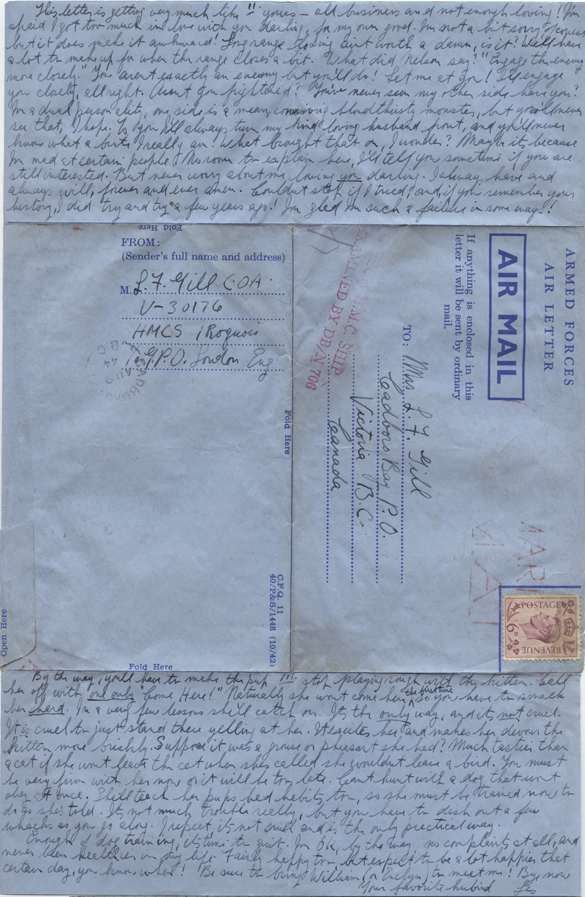 This letter is getting very much like yours – all business and not enough loving! I'm
afraid I got too much in love with you darling, for my own good. I'm not a bit sorry,
but it does make it awkward! Long range loving ain't worth a damn, is it! We'll have
a lot to make up for when the range closes a bit. What did Nelson say? "Engage the enemy
more closely." You aren't exactly an enemy but you'll do! Let me at you! I'll engage
you closely, all right. Aren't you frightened? You've never seen my other side have you?
I'm a dual personality, one side is a mean, conniving bloodthirsty monster, but you'll never
see that, I hope. To you I'll always turn my kind loving husband front, and you'll never
know what a I really am! What brought that on, I wonder? Maybe it's because
I'm mad at certain people & No room to explain here, I'll tell you sometime if you are
still interested. But never worry about my loving you darling. I always have and
always will, forever and ever amen. Couldn't stop if I tried, and if you remember your
history, I did try and try a few years ago! I'm glad I'm such a failure in some ways!
Fold Here
FROM:
(Sender's full name and address)
M. L.F. Gill C.O.A.
V-30176
HMCS Iroquois
G.P.O. London Eng
Fold Here
Open Here
Fold Here
C.F.Q. 11
40/P&S/1448 (10/42)
ARMED FORCES
AIR LETTER
AIR MAIL
If anything is enclosed in this
letter it will be sent by ordinary
mail.
TO:
Mrs L. F. Gill
Cadboro Bay P.O.
Victoria B.C.
Canada
H.M.C. SHIP
BY DB/N 706
POSTAGE
REVENUE
6D
By the way, you'll have to make the pup stop playing rough with the kitten. Call
her off with one only "Come Here!" Naturally she won't come here the first time so you have to smack
her hard. In a very few lessons she'll catch on. It's the only way, and it's not cruel.
It is cruel to just stand there yelling at her. It excites her and makes her devour the
kitten more briskly. Suppose it was a grouse or pheasant she had? Much tastier than
a cat & if she won't leave the cat when she's called she wouldn't leave a bird. You must
be very firm with her now or it will be too late. Can't hurt with a dog that won't
obey at once. She'll teach her pups bad habits too, so she must be trained now to
do as she's told. It's not much trouble really, but you have to dish out a few
whacks as you go along. I repeat, it's not cruel and is the only practical way.
Enough of dog training, it's time to quit. I'm OK, by the way, no complaints at all, and
never been healthier in my life. Fairly happy too, but expect to be a lot happier that
certain day, you know when! Be sure to bring William (or Evelyn) to meet me! Bye now
Your favorite husband Les